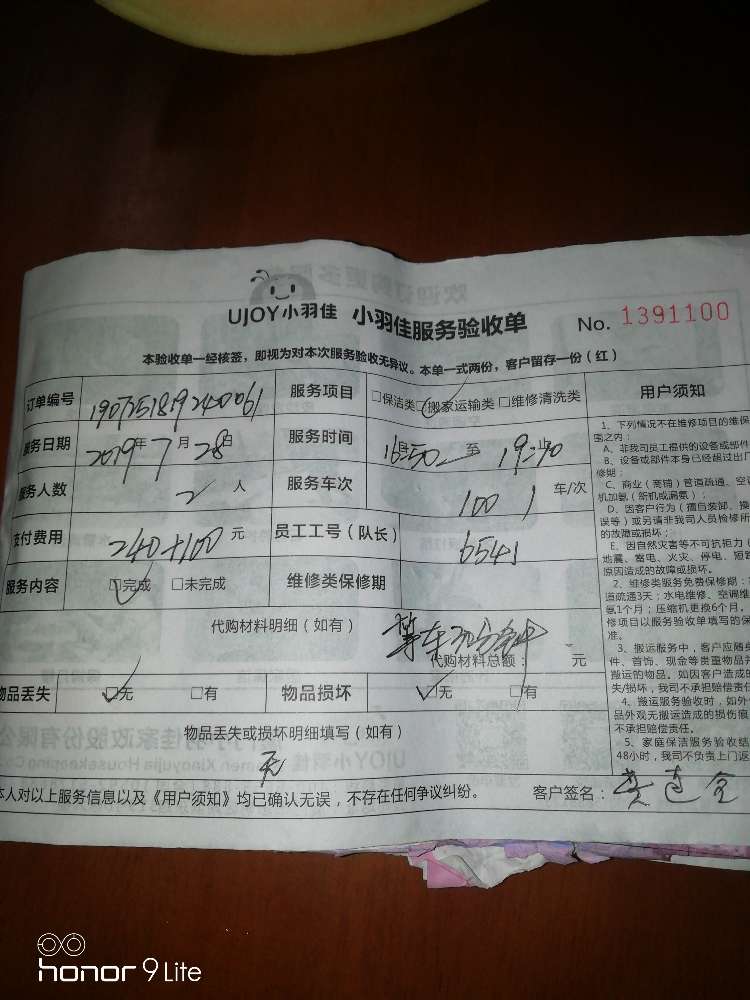 UJOY小羽佳 小羽佳服务验收单 No. 1391100
本验收单一经核签，即视为对本次服务验收无异议。本单一式两份，客户留存一份（红）
订单编号 服务项目 □保洁类 □搬家运输类 □维修清洗类 用户须知
服务日期 2019年7月28日 服务时间 至
服务人数 2人 服务车次 车/次
支付费用 240+100元 员工工号（队长） 6541
服务内容 □完成 □未完成 维修类保修期
代购材料明细（如有） 等车
代购材料总额： 元
物品丢失 □无 □有 物品损坏 □无 □有
物品丢失或损坏明细填写（如有）
无
本人对以上服务信息以及《用户须知》均已确认无误，不存在任何争议纠纷。 客户签名：
1、下列情况不在维修项目的维保
围之内：
A、非我司员工提供的设备或部件
B、设备或部件本身已经超过出厂
修期；
C、商业（商铺）管道疏通、空
机加氨（新机或漏氨）；
D、因客户行为（擅自装卸、操
误等）或另请非我司人员检修所
的故障或损坏；
E、因自然灾害等不可抗拒力（
地震、雷电、火灾、停电、短路
原因造成的故障或损坏。
2、维修类服务免费保修期：
道疏通3天；水电维修、空调维
氨1个月；压缩机更换6个月，
修项目以服务验收单填写的保
准。
3、搬运服务中，客户应随身
件、首饰、现金等贵重物品并
搬运的物品。如因客户造成的
失/损坏，我司不承担赔偿责任
4、搬运服务验收时，如外
品外观无搬运造成的损伤痕
不承担赔偿责任。
5、家庭保洁服务验收结
48小时，我司不负责上门返
honor 9 Lite